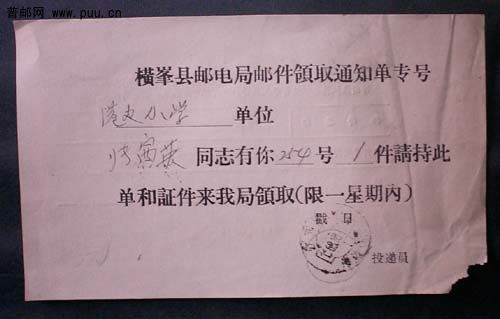 普邮网 www.puu.cn
横峯县邮电局邮件領取通知单专号
港边小学 单位
同志有你254号 1 件請持此
单和証件来我局領取(限一星期內)
投递員